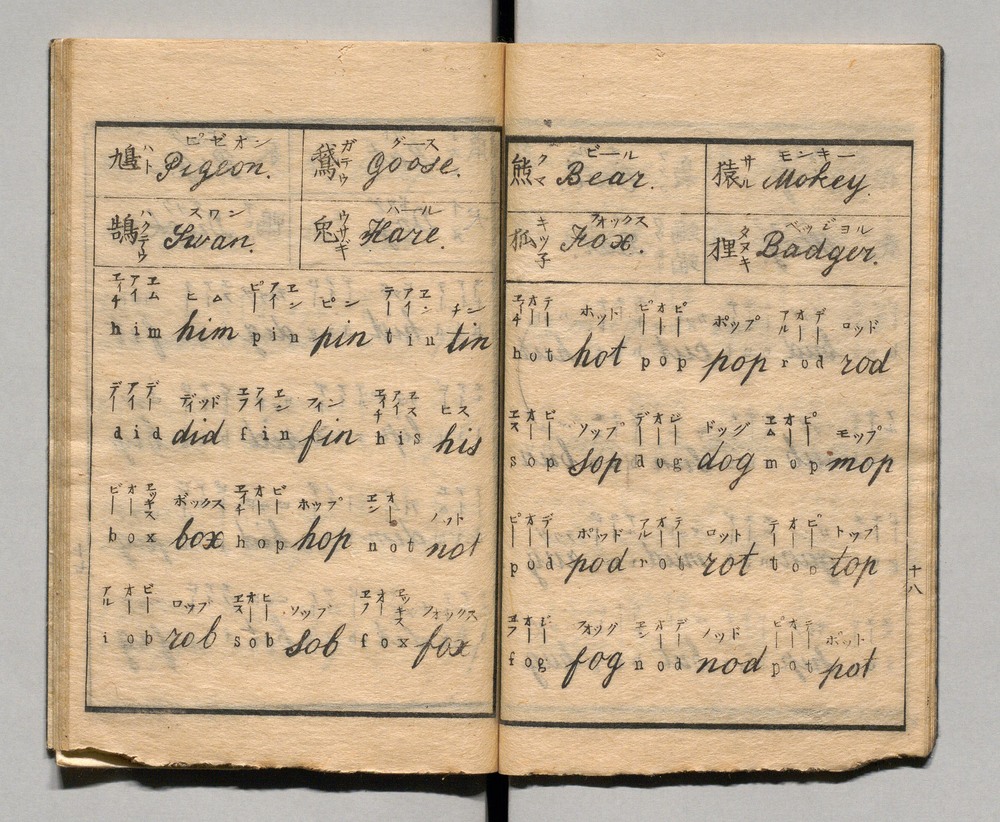 鳩 ハト ピゼオン Pigeon. 鵞 ガテウ グース Goose.
鵠 ハクテウ スワン Swan. 兎 ウサギ ハール Hare.
エイチ アイ エム ヒム ピー アイ エン ピン テー アイ エン チン
him him pin pin tin tin
デー アイ デー ディッド エフ アイ エン フィン エイチ アイ エス ヒス
did did fin fin his his
ビー オー エッキス ボックス エイチ オー ピー ホップ エン オー ノット
box box hop hop not not
アル オー ビー ロッブ エス オー ビー ソッブ エフ オー エッキス フォックス
iob rob sob sob fox fox
熊 クマ ビール Bear. 猿 サル モンキー Mokey.
狐 キツ子 フォックス Fox. 狸 タヌキ ベッジヨル Badger.
エイチ オー テー ホット ピー オー ピー ポップ アル オー デー ロッド
hot hot pop pop rod rod
エス オー ピー ソップ デー オー ジー ドッグ エム オー ピー モップ
sop sop dog dog mop mop
ピー オー デー ポッド アル オー テー ロット テー オー ピー トップ
pod pod rot rot top top
エフ オー ジー フォッグ エン オー デー ノッド ピー オー テー ポット
fog fog nod nod pot pot
十八